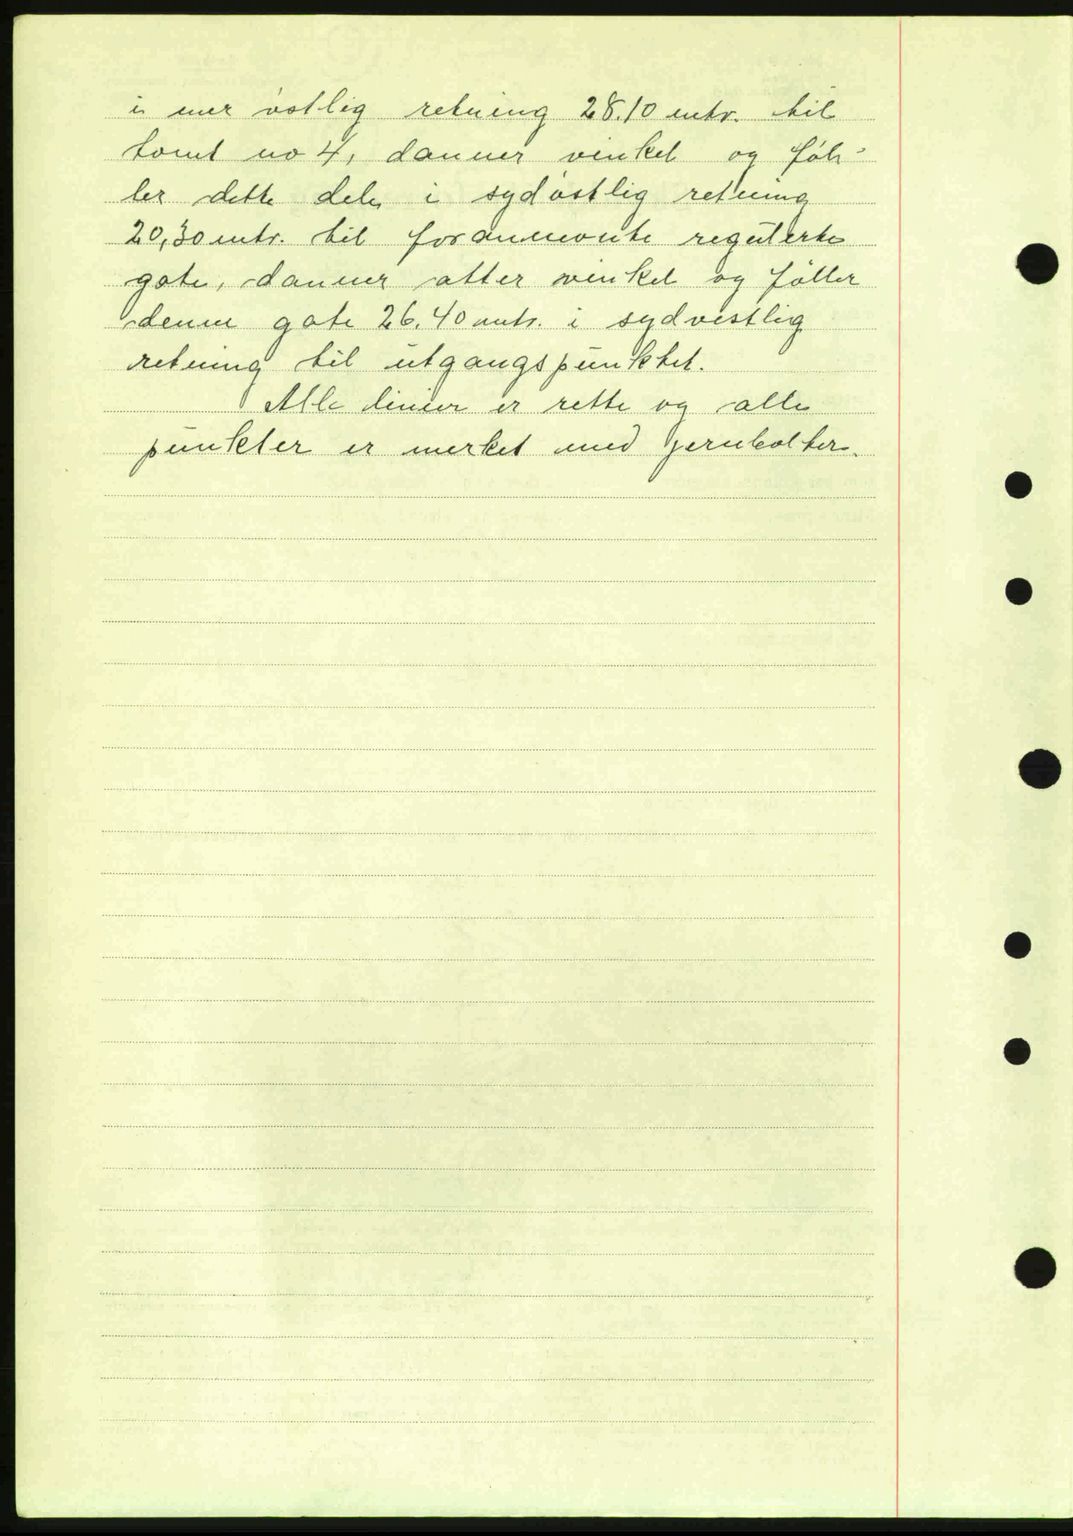 i mer östlig retning 28.10 mtr. til
tomt no 4, danner vinkel og föl-
ler dette dele i sydöstlig retning
20,30 mtr. til forannevnte regulerte
gate, danner atter vinkel og föller
denne gate 26.40 mtr. i sydvestlig
retning til utgangspunktet.
Alle linier er rette og alle
punkter er merket med jernbolter.